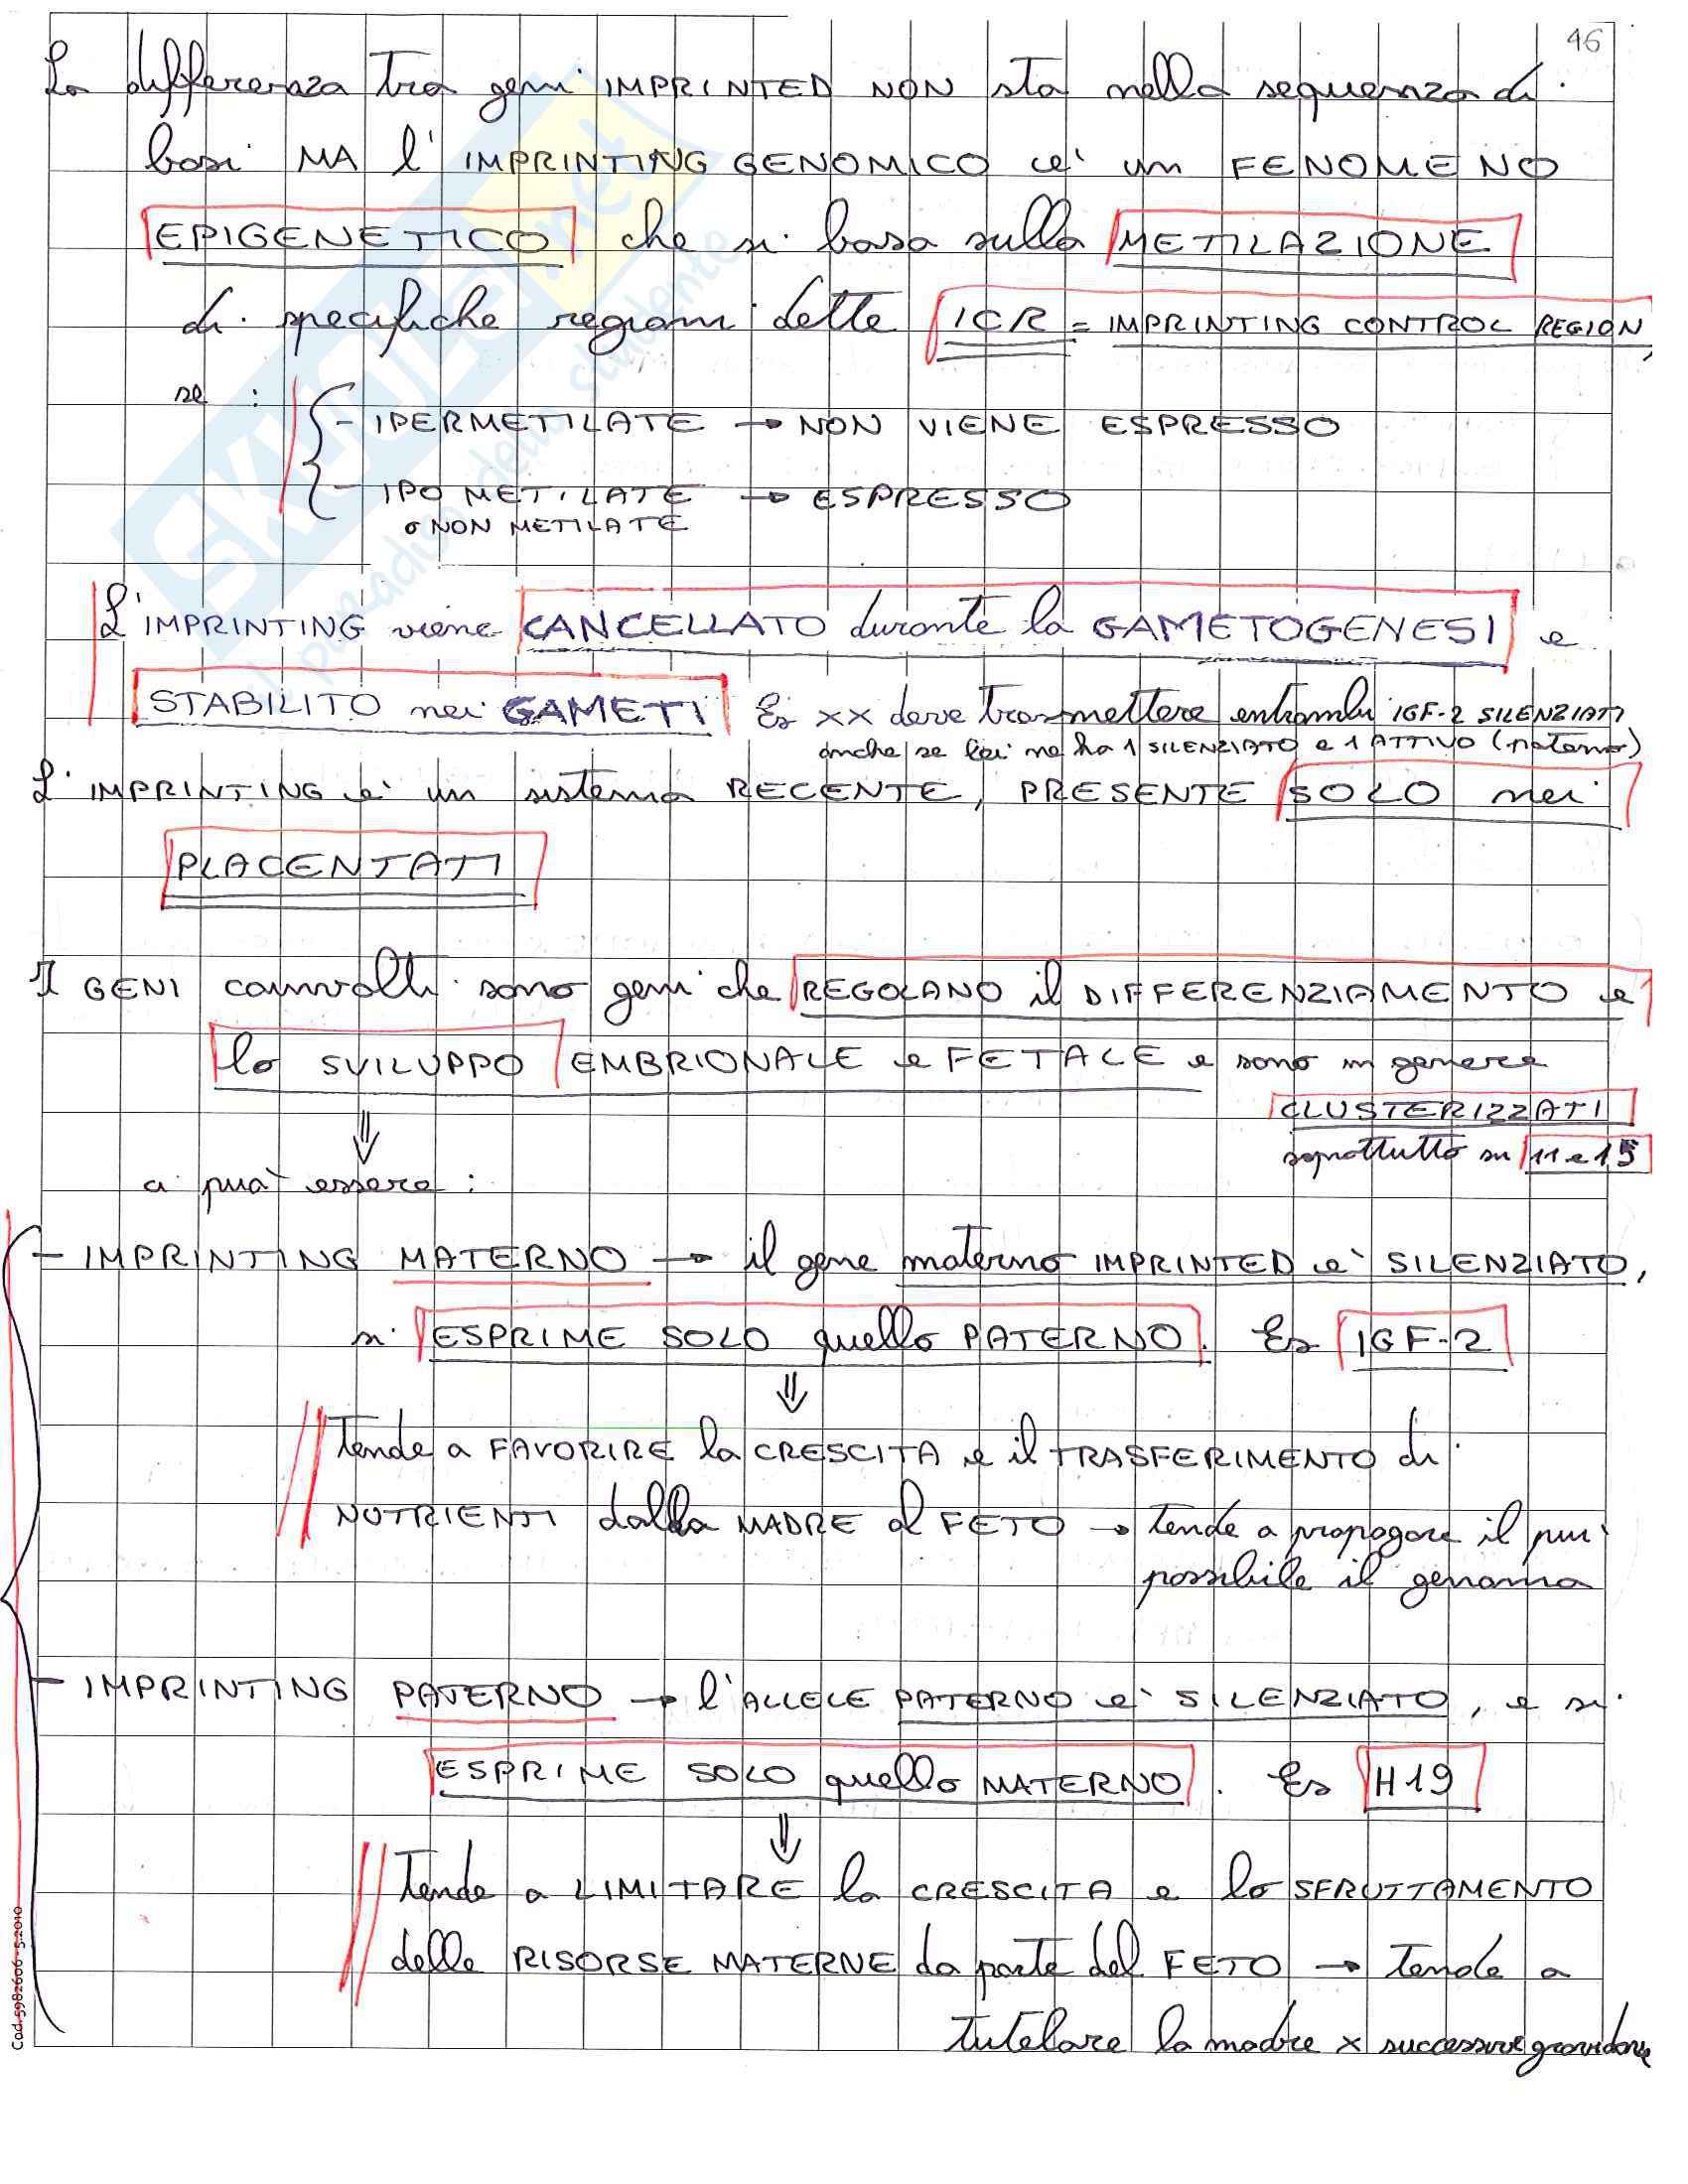 46
La differenza tra geni IMPRINTED NON sta nella sequenza di
basi MA l'IMPRINTING GENOMICO è un FENOMENO
EPIGENETICO che si basa sulla METILAZIONE
di specifiche regioni dette ICR = IMPRINTING CONTROL REGION,
se :
- IPERMETILATE → NON VIENE ESPRESSO
- IPO METILATE → ESPRESSO
o NON METILATE
L'IMPRINTING viene CANCELLATO durante la GAMETOGENESI e
STABILITO nei GAMETI Es XX deve trasmettere entrambi IGF-2 SILENZIATI
anche se lei ne ha 1 SILENZIATO e 1 ATTIVO (paterno)
L'IMPRINTING è un sistema RECENTE, PRESENTE SOLO nei
PLACENTATI
I GENI coinvolti sono geni che REGOLANO il DIFFERENZIAMENTO e
lo SVILUPPO EMBRIONALE e FETALE e sono in genere
CLUSTERIZZATI
soprattutto su 11 e 15
⇓
ci può essere :
- IMPRINTING MATERNO → il gene materno IMPRINTED è SILENZIATO,
si ESPRIME SOLO quello PATERNO. Es IGF-2
⇓
Tende a FAVORIRE la CRESCITA e il TRASFERIMENTO di
NUTRIENTI dalla MADRE al FETO → tende a propagare il più
possibile il genoma
- IMPRINTING PATERNO → l'ALLELE PATERNO è SILENZIATO, e si
ESPRIME SOLO quello MATERNO. Es H19
⇓
Tende a LIMITARE la CRESCITA e lo SFRUTTAMENTO
delle RISORSE MATERNE da parte del FETO → tende a
tutelare la madre x successive gravidanze
Cod. 5982606 - 5.2010
SKUOLA.net
il paradiso dello studente